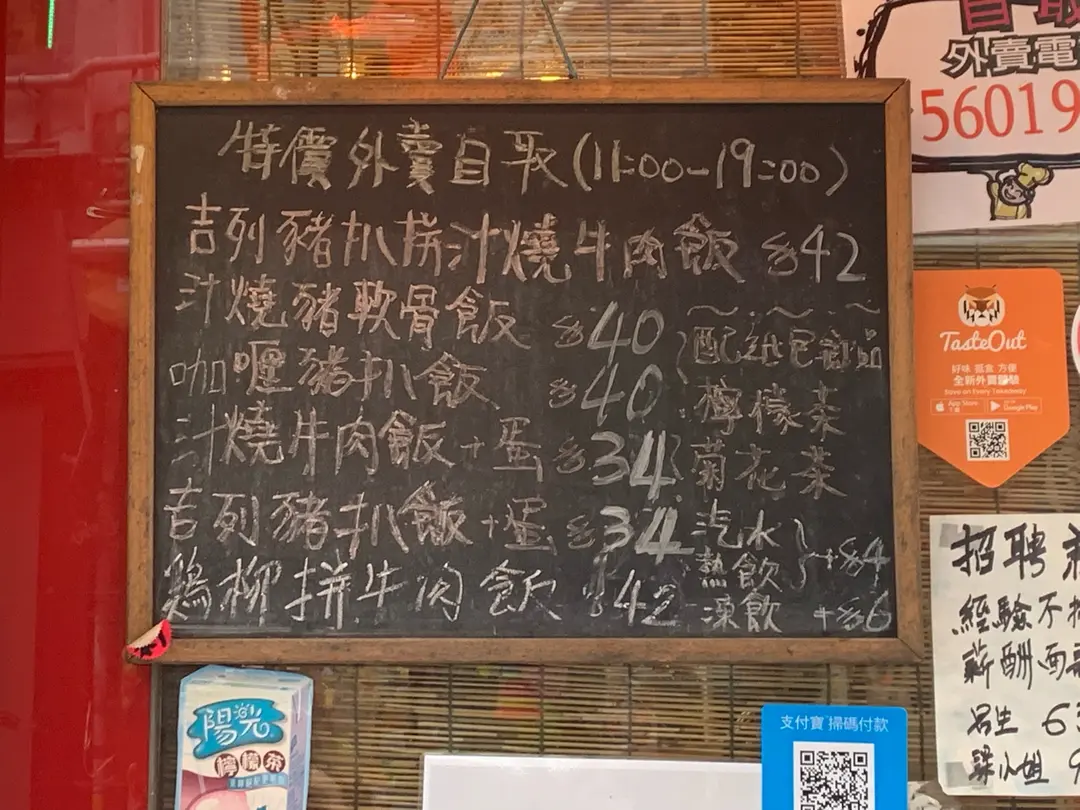 特價外賣自取(11:00-19:00)
吉列豬扒拼汁燒牛肉飯 $42
汁燒豬軟骨飯 $40
咖喱豬扒飯 $40
汁燒牛肉飯+蛋 $34
吉列豬扒飯+蛋 $34
鷄柳拼牛肉飯 $42
配紙包飲品
檸檬茶
菊花茶
汽水
熱飲
+$4
凍飲 +$6
自取
外賣電
56019
TasteOut
好味 抵食 方便
全新外賣體驗
Save on Every Takeaway
App Store
下載
Google Play
招聘
經驗不
薪酬面
男生 63
梁小姐 9
陽光
檸檬茶
支付寶 掃碼付款